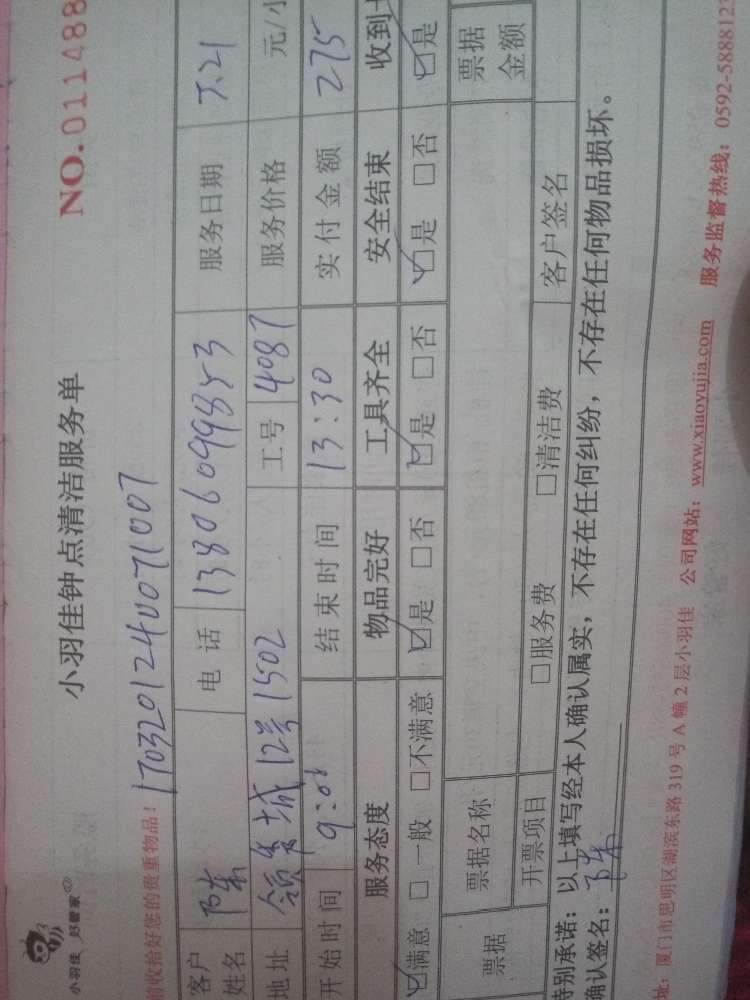 小羽佳 好管家
小羽佳钟点清洁服务单
NO.011488
收拾好您的贵重物品!
1703201240071007
客户姓名 陈 电话 13806099853 服务日期 3.21
地址 领秀城12号1502 工号 4087 服务价格 元/小
开始时间 9:00 结束时间 13:30 实付金额 275
服务态度 物品完好 工具齐全 安全结束 收到
☑满意 □一般 □不满意 ☑是 □否 ☑是 □否 ☑是 □否 ☑是
票据 票据名称 票据金额
开票项目 □服务费 □清洁费 客户签名
特别承诺:以上填写经本人确认属实,不存在任何纠纷,不存在任何物品损坏。
确认签名:陈
址:厦门市思明区湖滨东路319号A幢2层小羽佳 公司网站:www.xiaoyujia.com 服务监督热线:0592-5888123